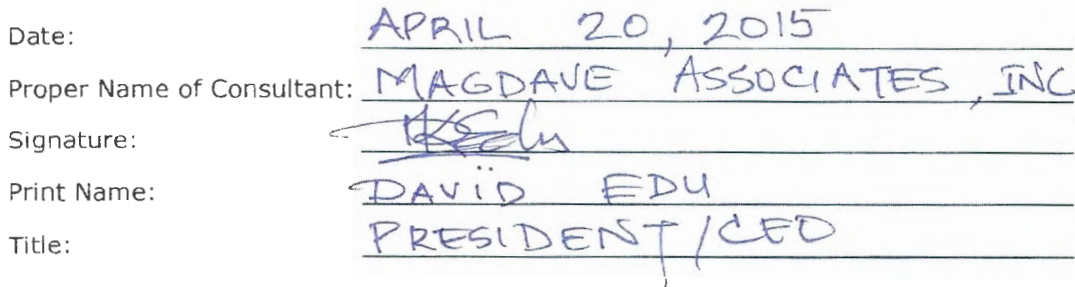 Date: APRIL 20, 2015
Proper Name of Consultant: MAGDAVE ASSOCIATES, INC
Signature:
Print Name: DAVID EDU
Title: PRESIDENT/CEO